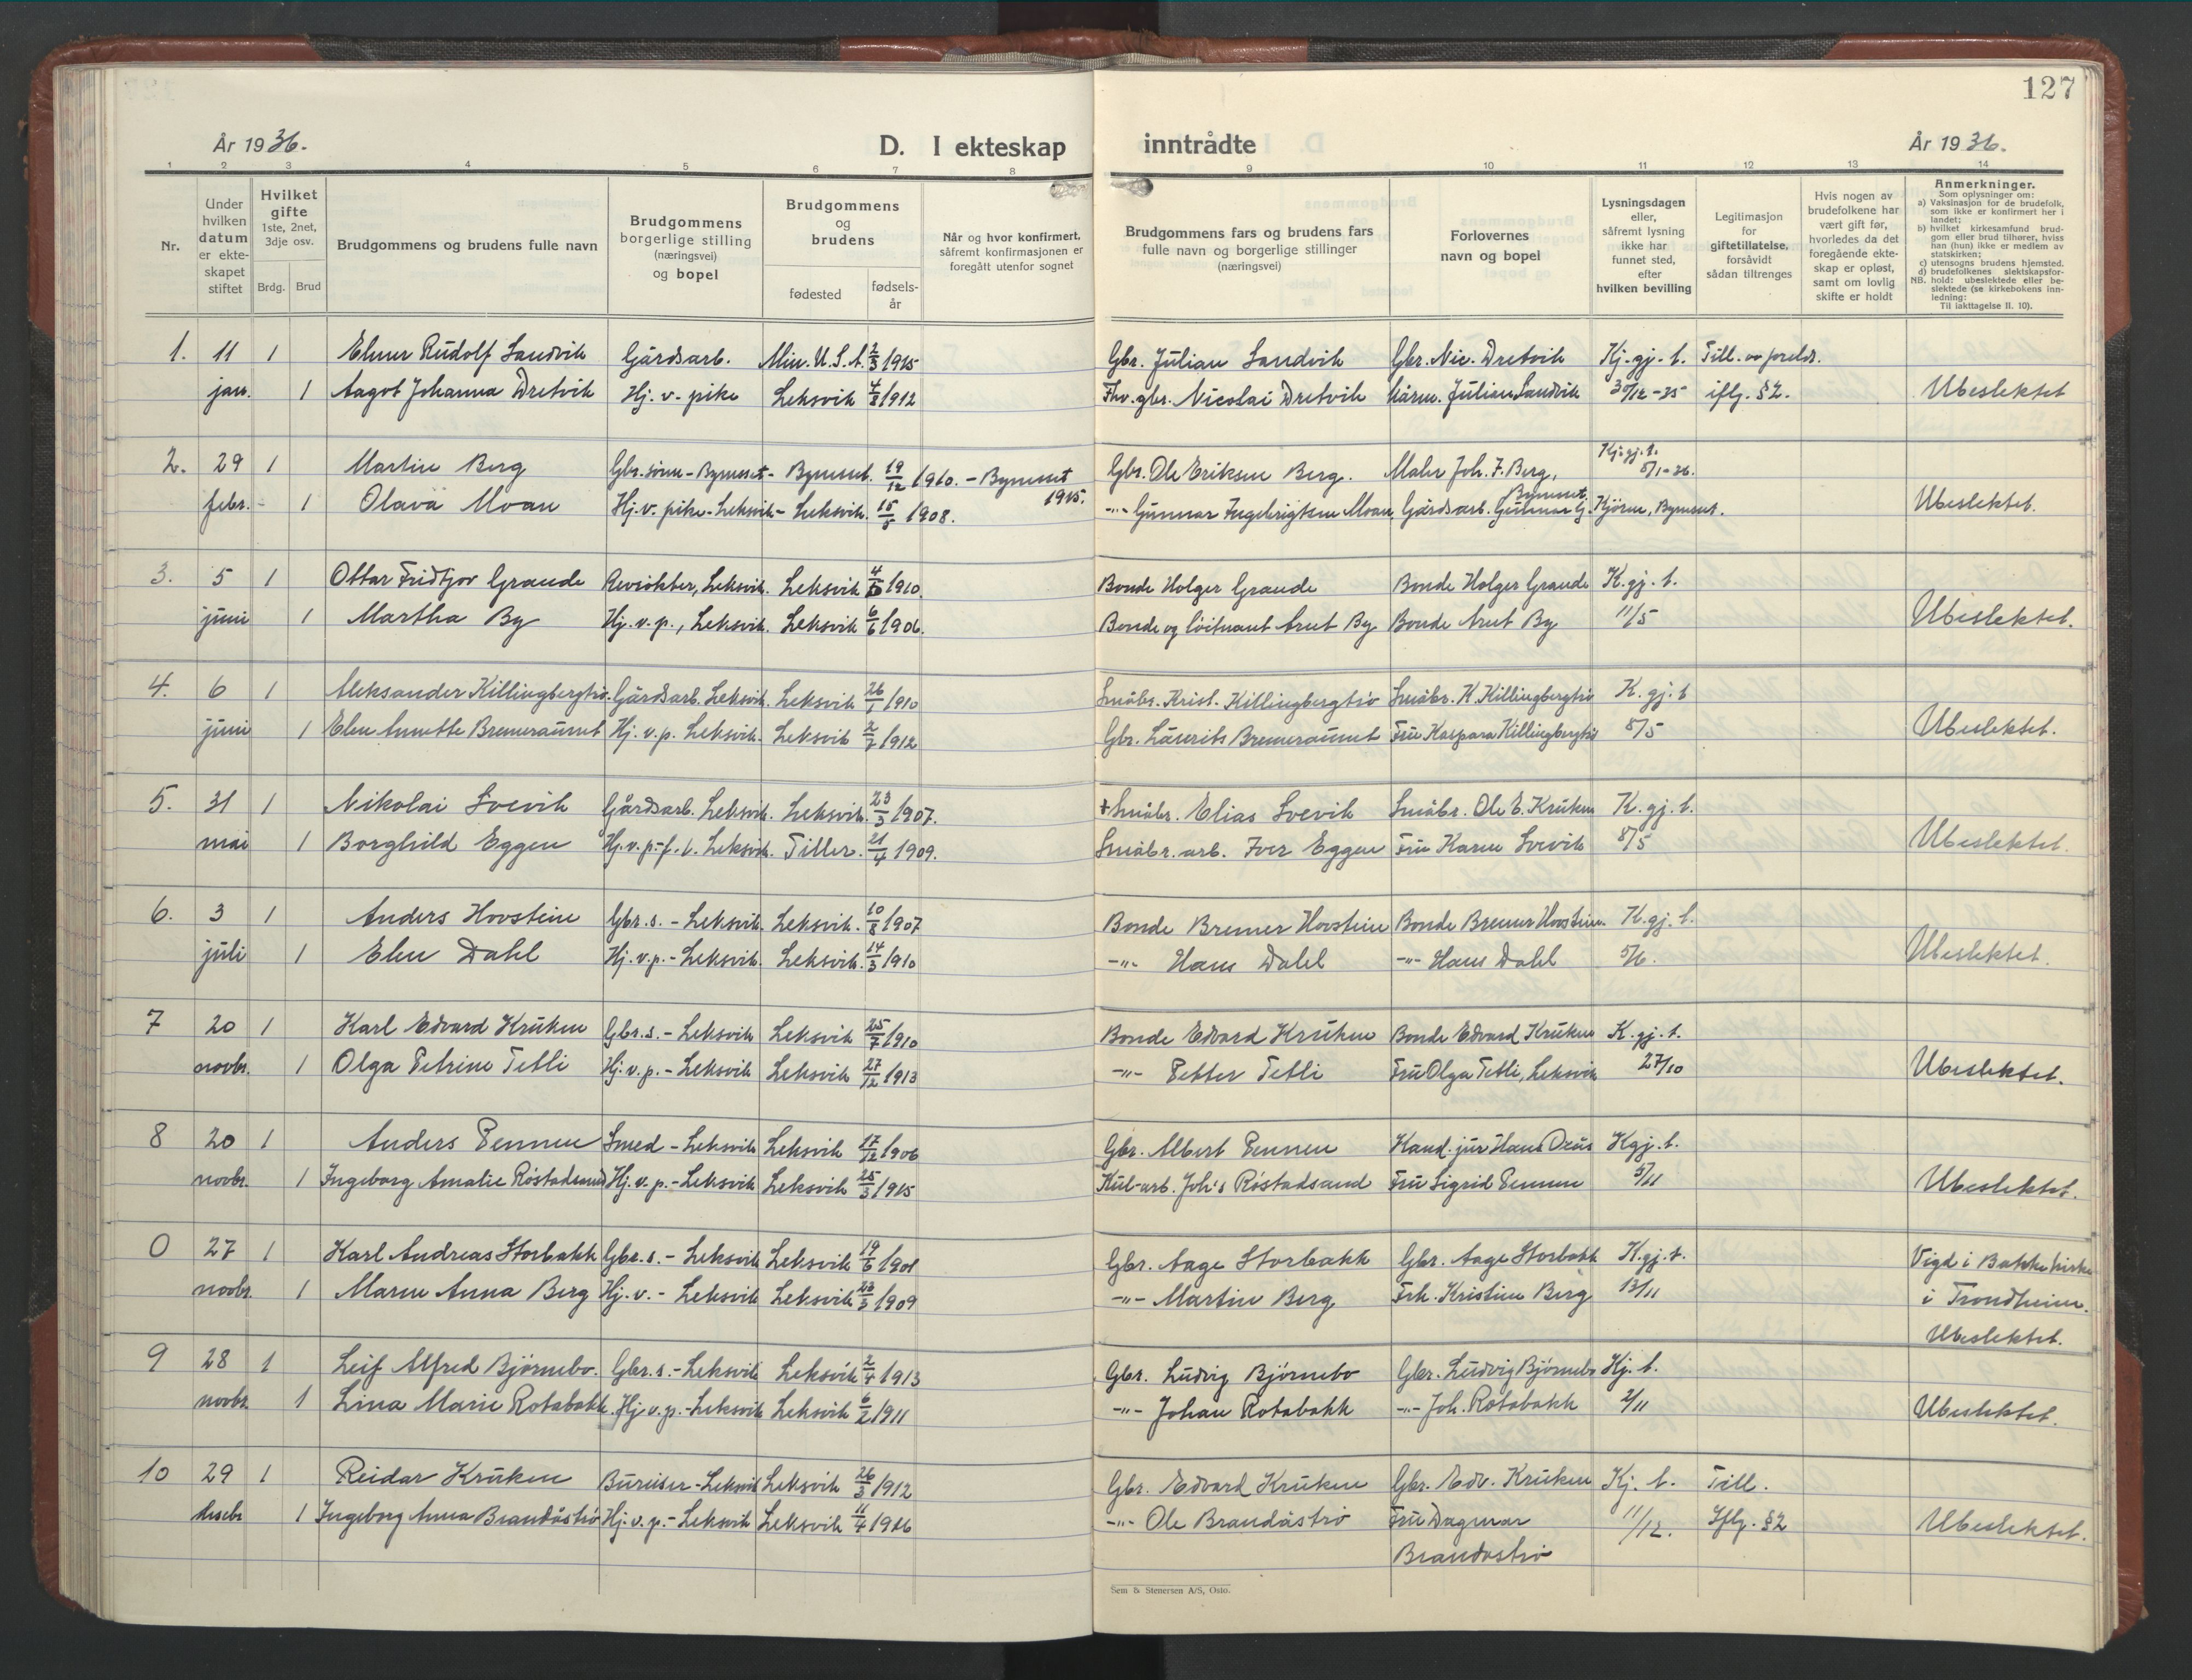 127
År 1936.
D. I ekteskap inntrådte
År 1936.
1 2 3 4 5 6 7 8 9 10 11 12 13 14
Nr.
Under hvilken datum er ekte-skapet stiftet
Hvilket gifte 1ste, 2net, 3dje osv.
Brdg. Brud
Brudgommens og brudens fulle navn
Brudgommens borgerlige stilling (næringsvei) og bopel
Brudgommens og brudens
fødested
fødsels-år
Når og hvor konfirmert, såfremt konfirmasjonen er foregått utenfor sognet
Brudgommens fars og brudens fars fulle navn og borgerlige stillinger (næringsvei)
Forlovernes navn og bopel
Lysningsdagen eller, såfremt lysning ikke har funnet sted, efter hvilken bevilling
Legitimasjon for giftetillatelse, forsåvidt sådan tiltrenges
Hvis nogen av brudefolkene har vært gift før, hvorledes da det foregående ekte-skap er opløst, samt om lovlig skifte er holdt
Anmerkninger.
Som oplysninger om:
a) Vaksinasjon for de brudefolk, som ikke er konfirmert her i landet;
b) hvilket kirkesamfund brud-gom eller brud tilhører, hviss han (hun) ikke er medlem av statskirken;
c) utensogns brudens hjemsted.
d) brudefolkenes slektskapsfor-
NB. hold: ubeslektede eller be-slektede (se kirkebokens inn-ledning:
Til iakttagelse II. 10).
1. 11 1 Elmer Rudolf Sandvik Gårdsarb. Min. U.S.A. 2/3 1915 Gbr. Julian Sandvik Gbr. Nic. Dretvik Kj. gj. t. Till. av foreldr.
jan. 1 Aagot Johanna Dretvik Hj. v. pike Leksvik 4/8 1912 Fhv. gbr. Nicolai Dretvik Julian Sandvik 30/12-35 iflg. §2. Ubeslektet
2. 29 1 Martin Berg Gbr. sønn - Byneset - Byneset. 19/12 1910. - Byneset 1915. Gbr. Ole Eriksen Berg. Maler Joh. F. Berg, Byneset Kj. gj. t. 5/1-36.
febr. 1 Olava Moan Hj. v. pike - Leksvik - Leksvik. 1908. -"- Gunnar Ingebrigtsen Moan, Gårdsarb. Gunnar G. Kjøren, Byneset. Ubeslektet.
3. 5 1 Ottar Fridtjov Grande Leksvik. Leksvik 1910. Bonde Holger Grande Bonde Holger Grande K. gj. t.
juni 1 Martha By Hj. v. p., Leksvik. Leksvik 6/6 1906. Bonde og løitnant Arnt By Bonde Arnt By 11/5 Ubeslektet.
4. 6 1 Aleksander Killingbergtrø. Gårdsarb. Leksvik. Leksvik 26/1 1910 Småbr. Krist. Killingbergtrø Småbr. K. Killingbergtrø K. gj. t
juni 1 Elen Annette Bremeraunet Hj. v. p. Leksvik. Leksvik 2/7 1912 Gbr. Laurits Bremeraunet Fru Kaspara Killingbergtrø 8/5 Ubeslektet.
5. 31 1 Nikolai Svevik Gårdsarb. Leksvik. Leksvik. 23/3 1907. + Småbr. Elias Svevik Småbr. Ole E. Kruken K. gj. t.
mai 1 Borghild Eggen Hj. v. p. - f. t. Leksvik. Tiller. 21/4 1909. Småbr. arb. Iver Eggen Fru Karen Svevik 8/5 Ubeslektet.
6. 3 1 Anders Hovstein Gbr. s. - Leksvik. Leksvik. 10/8 1907 Bonde Bremer Hovstein Bonde Bremer Hovstein. K. gj. t.
juli 1 Elen Dahl Hj. v. p. - Leksvik. Leksvik. 14/3 1910 -"- Hans Dahl -"- Hans Dahl 5/6. Ubeslektet.
7 20 1 Karl Edvard Kruken Gbr. s. - Leksvik Leksvik 25/7 1910 Bonde Edvard Kruken Bonde Edvard Kruken K. gj. t.
novbr. 1 Olga Petrine Tetli Hj. v. p. - Leksvik Leksvik 27/12 1913 -"- Petter Tetli Fru Olga Tetli, Leksvik 27/10 Ubeslektet.
8 20 1 Anders Pennen Smed - Leksvik Leksvik 17/12 1906 Gbr. Albert Pennen Kand. jur Hans K gj. t.
novbr. 1 Ingeborg Amalie Røstadsand Hj. v. p. - Leksvik Leksvik 25/3 1915 Joh's Røstadsand Fru Sigrid Pennen 5/11 Ubeslektet.
0 27 1 Karl Andreas Storbakk Gbr. s. - Leksvik Leksvik 19/6 1901 Gbr. Aage Storbakk Gbr. Aage Storbakk K. gj. t. Vigd i Bakke kirke
novbr. 1 Maren Anna Berg Hj. v. - Leksvik Leksvik 23/3 1909 -"- Martin Berg Frk. Kristine Berg 13/11 i Trondheim.
Ubeslektet.
9 28 1 Leif Alfred Bjørnebo. Gbr. s. - Leksvik Leksvik 2/4 1913 Gbr. Ludvig Bjørnebo Gbr. Ludvig Bjørnebo Kj. t.
novbr. 1 Lina Marie Rotabakk. Hj. v. p. - Leksvik Leksvik 6/2 1911 -"- Johan Rotabakk -"- Joh. Rotabakk 2/11 Ubeslektet.
10 29 1 Reidar Kruken Bureiser - Leksvik Leksvik 26/3 1912 Gbr. Edvard Kruken Gbr. Edv. Kruken Kj. t. Till.
desbr 1 Ingeborg Anna Brandåstrø Hj. v. p. - Leksvik Leksvik 11/4 1916 -"- Ole Brandåstrø Fru Dagmar Brandåstrø 11/12. Iflg. §2 Ubeslektet.
Sem & Stenersen A/S, Oslo.